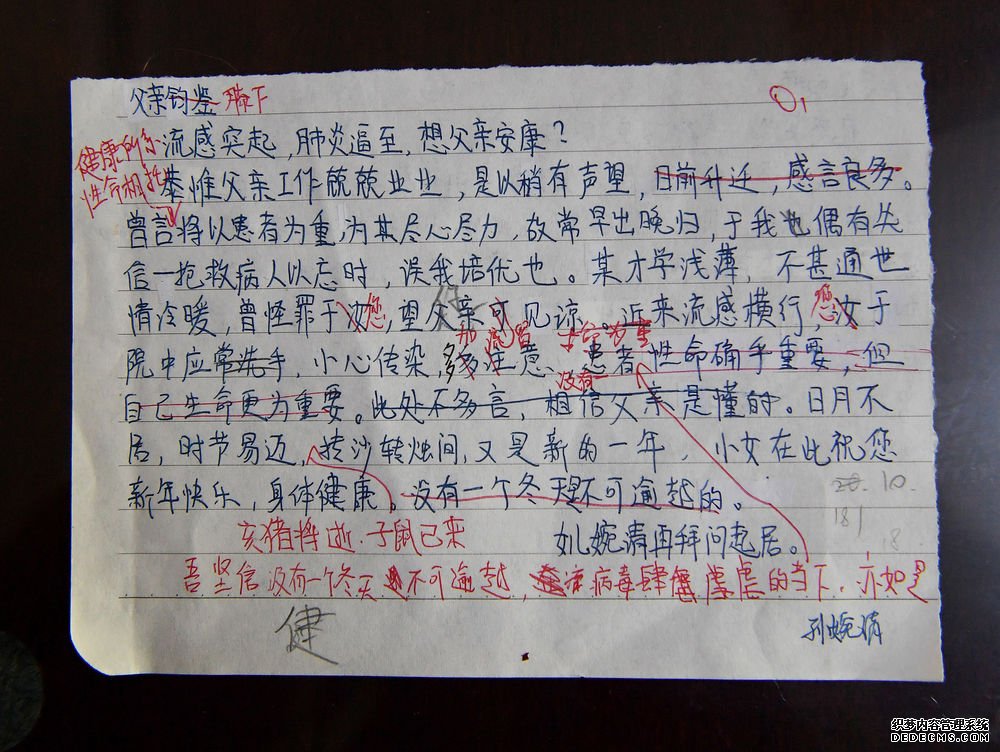 父亲钧鉴 膝下
流感突起,肺炎逼至,想父亲安康?
健康所系
性命相托
恭惟父亲工作兢兢业业,是以稍有声望,日前升迁,感言良多。
曾言将以患者为重,为其尽心尽力,故常早出晚归,于我也偶有失
信—抢救病人以忘时,误我培优也。某才学浅薄,不甚通世
情冷暖,曾怪罪于汝您,望父亲可见谅。近来流感横行,您汝于
院中应常洗手,小心传染,多注意、患者性命确乎重要,但
自己生命更为重要。此处不多言,相信父亲是懂的。日月不
居,时节易迈,转沙转烛间,又是新的一年,小女在此祝您
新年快乐,身体健康。没有一个冬天是不可逾越的。
10.
181
18
亥猪将逝.子鼠已来
女儿婉清再拜问起居。
吾坚信没有一个冬天不可逾越,病毒肆虐的当下,亦如是
健
孙婉清
织梦内容管理系统
DEDECMS.COM